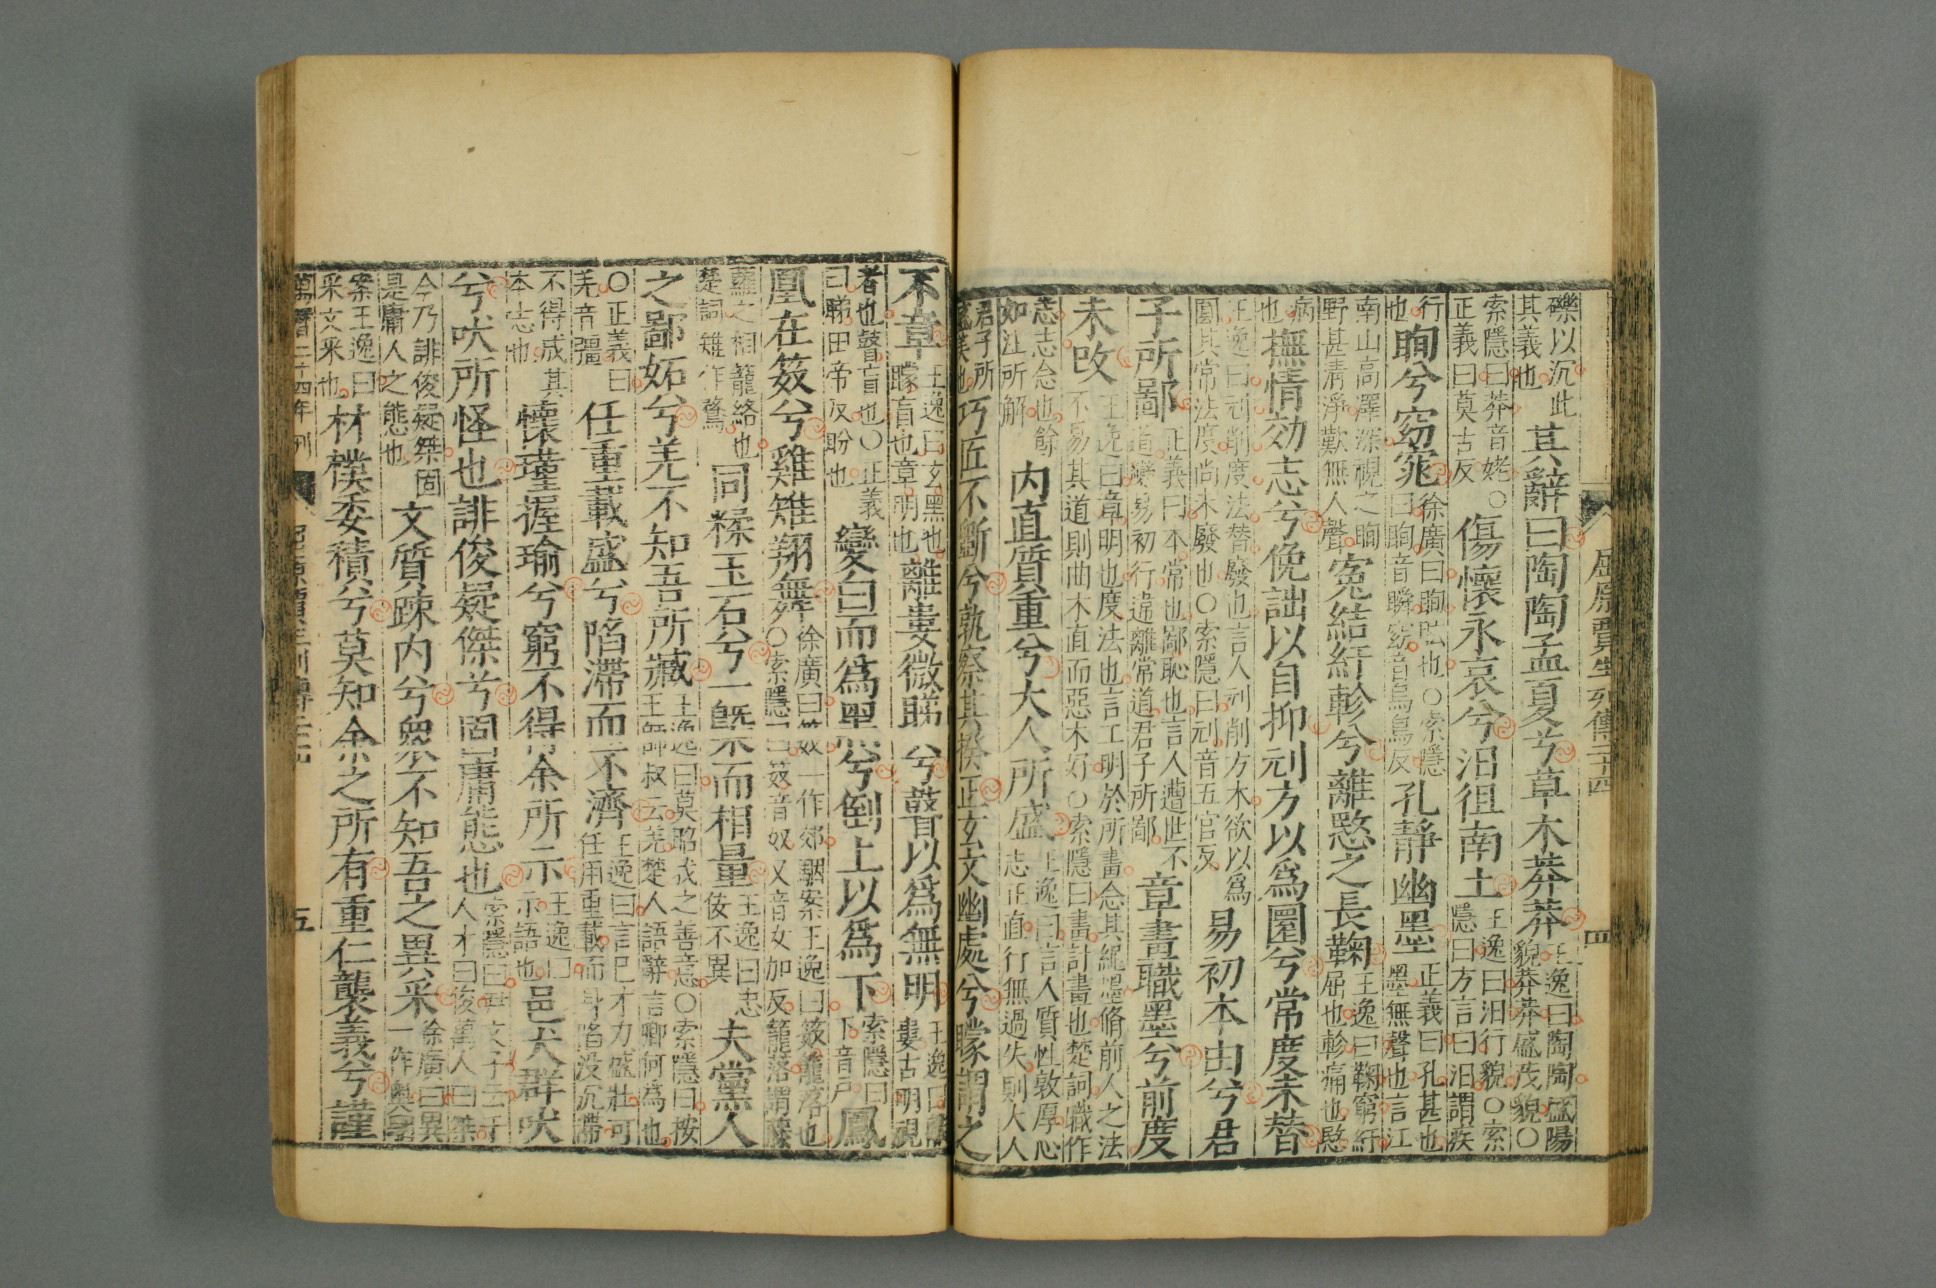 屈原賈生列傳二十四 四
礫以沉此
其義也
其辭曰陶陶孟夏兮草木莽莽
王逸曰陶陶盛陽
貌莽莽盛茂貌○
索隱曰莽音姥○
正義曰莫古反
傷懷永哀兮汩徂南土
王逸曰汩行貌○索
隱曰方言曰汩謂疾
行
也
眴兮窈窕
徐廣曰眴眩也○索隱
曰眴音瞬窈音烏鳥反
孔靜幽墨
正義曰孔甚也
墨無聲也言江
南山高澤深視之眴
野甚清淨歎無人聲
冤結紆軫兮離愍之長鞠
王逸曰鞠窮紆
屈也軫痛也愍
病
也
撫情効志兮俛詘以自抑刓方以爲圜兮常度未替
王逸曰刓削度法替廢也言人刓削方木欲以爲
圜其常法度尚未廢也○索隱曰刓音五官反
易初本由兮君
子所鄙
正義曰本常也鄙恥也言人遭世不
道變易初行違離常道君子所鄙
章畫職墨兮前度
未改
王逸曰章明也度法也言工明於所畫念其繩墨脩前人之法
不易其道則曲木直而惡木好○索隱曰畫計畫也楚詞職作
志志念也餘
如注所解
内直質重兮大人所盛
王逸曰言人質性敦厚心
志正直行無過失則大人
君子所
盛美也
巧匠不斲兮孰察其揆正玄文幽處兮矇謂之
不章
王逸曰玄黑也
矇盲也章明也
離婁微睇兮瞽以爲無明
王逸曰離
婁古明視
者也瞽盲也○正義
曰睇田帝反眄也
變白而爲黑兮倒上以爲下
索隱曰
下音戶
鳳
凰在笯兮雞雉翔舞
徐廣曰笯一作郊駰案王逸曰笯籠落也
○索隱曰笯音奴又音女加反籠落謂藤
蘿之相籠絡也
楚詞雉作鶩
同糅玉石兮一槩而相量
王逸曰忠
佞不異
夫黨人
之鄙妬兮羌不知吾所臧
王逸曰莫昭我之善意○索隱曰按
王師叔云羌楚人語辭言卿何爲也
○正義曰
羌音彊
任重載盛兮陷滯而不濟
王逸曰言己才力盛壯可
任用重載而身陷没沉滯
不得成其
本志也
懷瑾握瑜兮窮不得余所示
王逸曰
示語也
邑犬群吠
兮吠所怪也誹俊疑傑兮固庸態也
索隱曰尹文子云千
人才曰俊萬人曰桀
今乃誹俊疑桀固
是庸人之態也
文質疎内兮衆不知吾之異采
徐廣曰異
一作奥駰
案王逸曰
采文采也
材樸委積兮莫知余之所有重仁襲義兮謹
萬曆二十四年刊 五